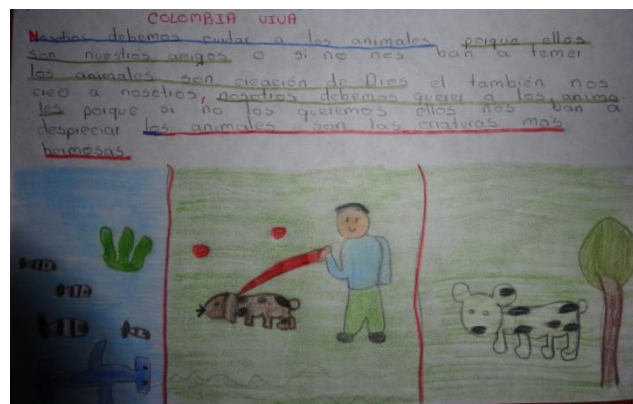 COLOMBIA VIVA
Nosotros debemos cuidar a los animales porque ellos
son nuestros amigos o si no nos ban a temer
los animales son creación de Dios el también nos
creo a nosotros, nosotros debemos querer a los anima
les porque si no los queremos ellos nos ban a
despreciar los animales son las criaturas mas
hermosas